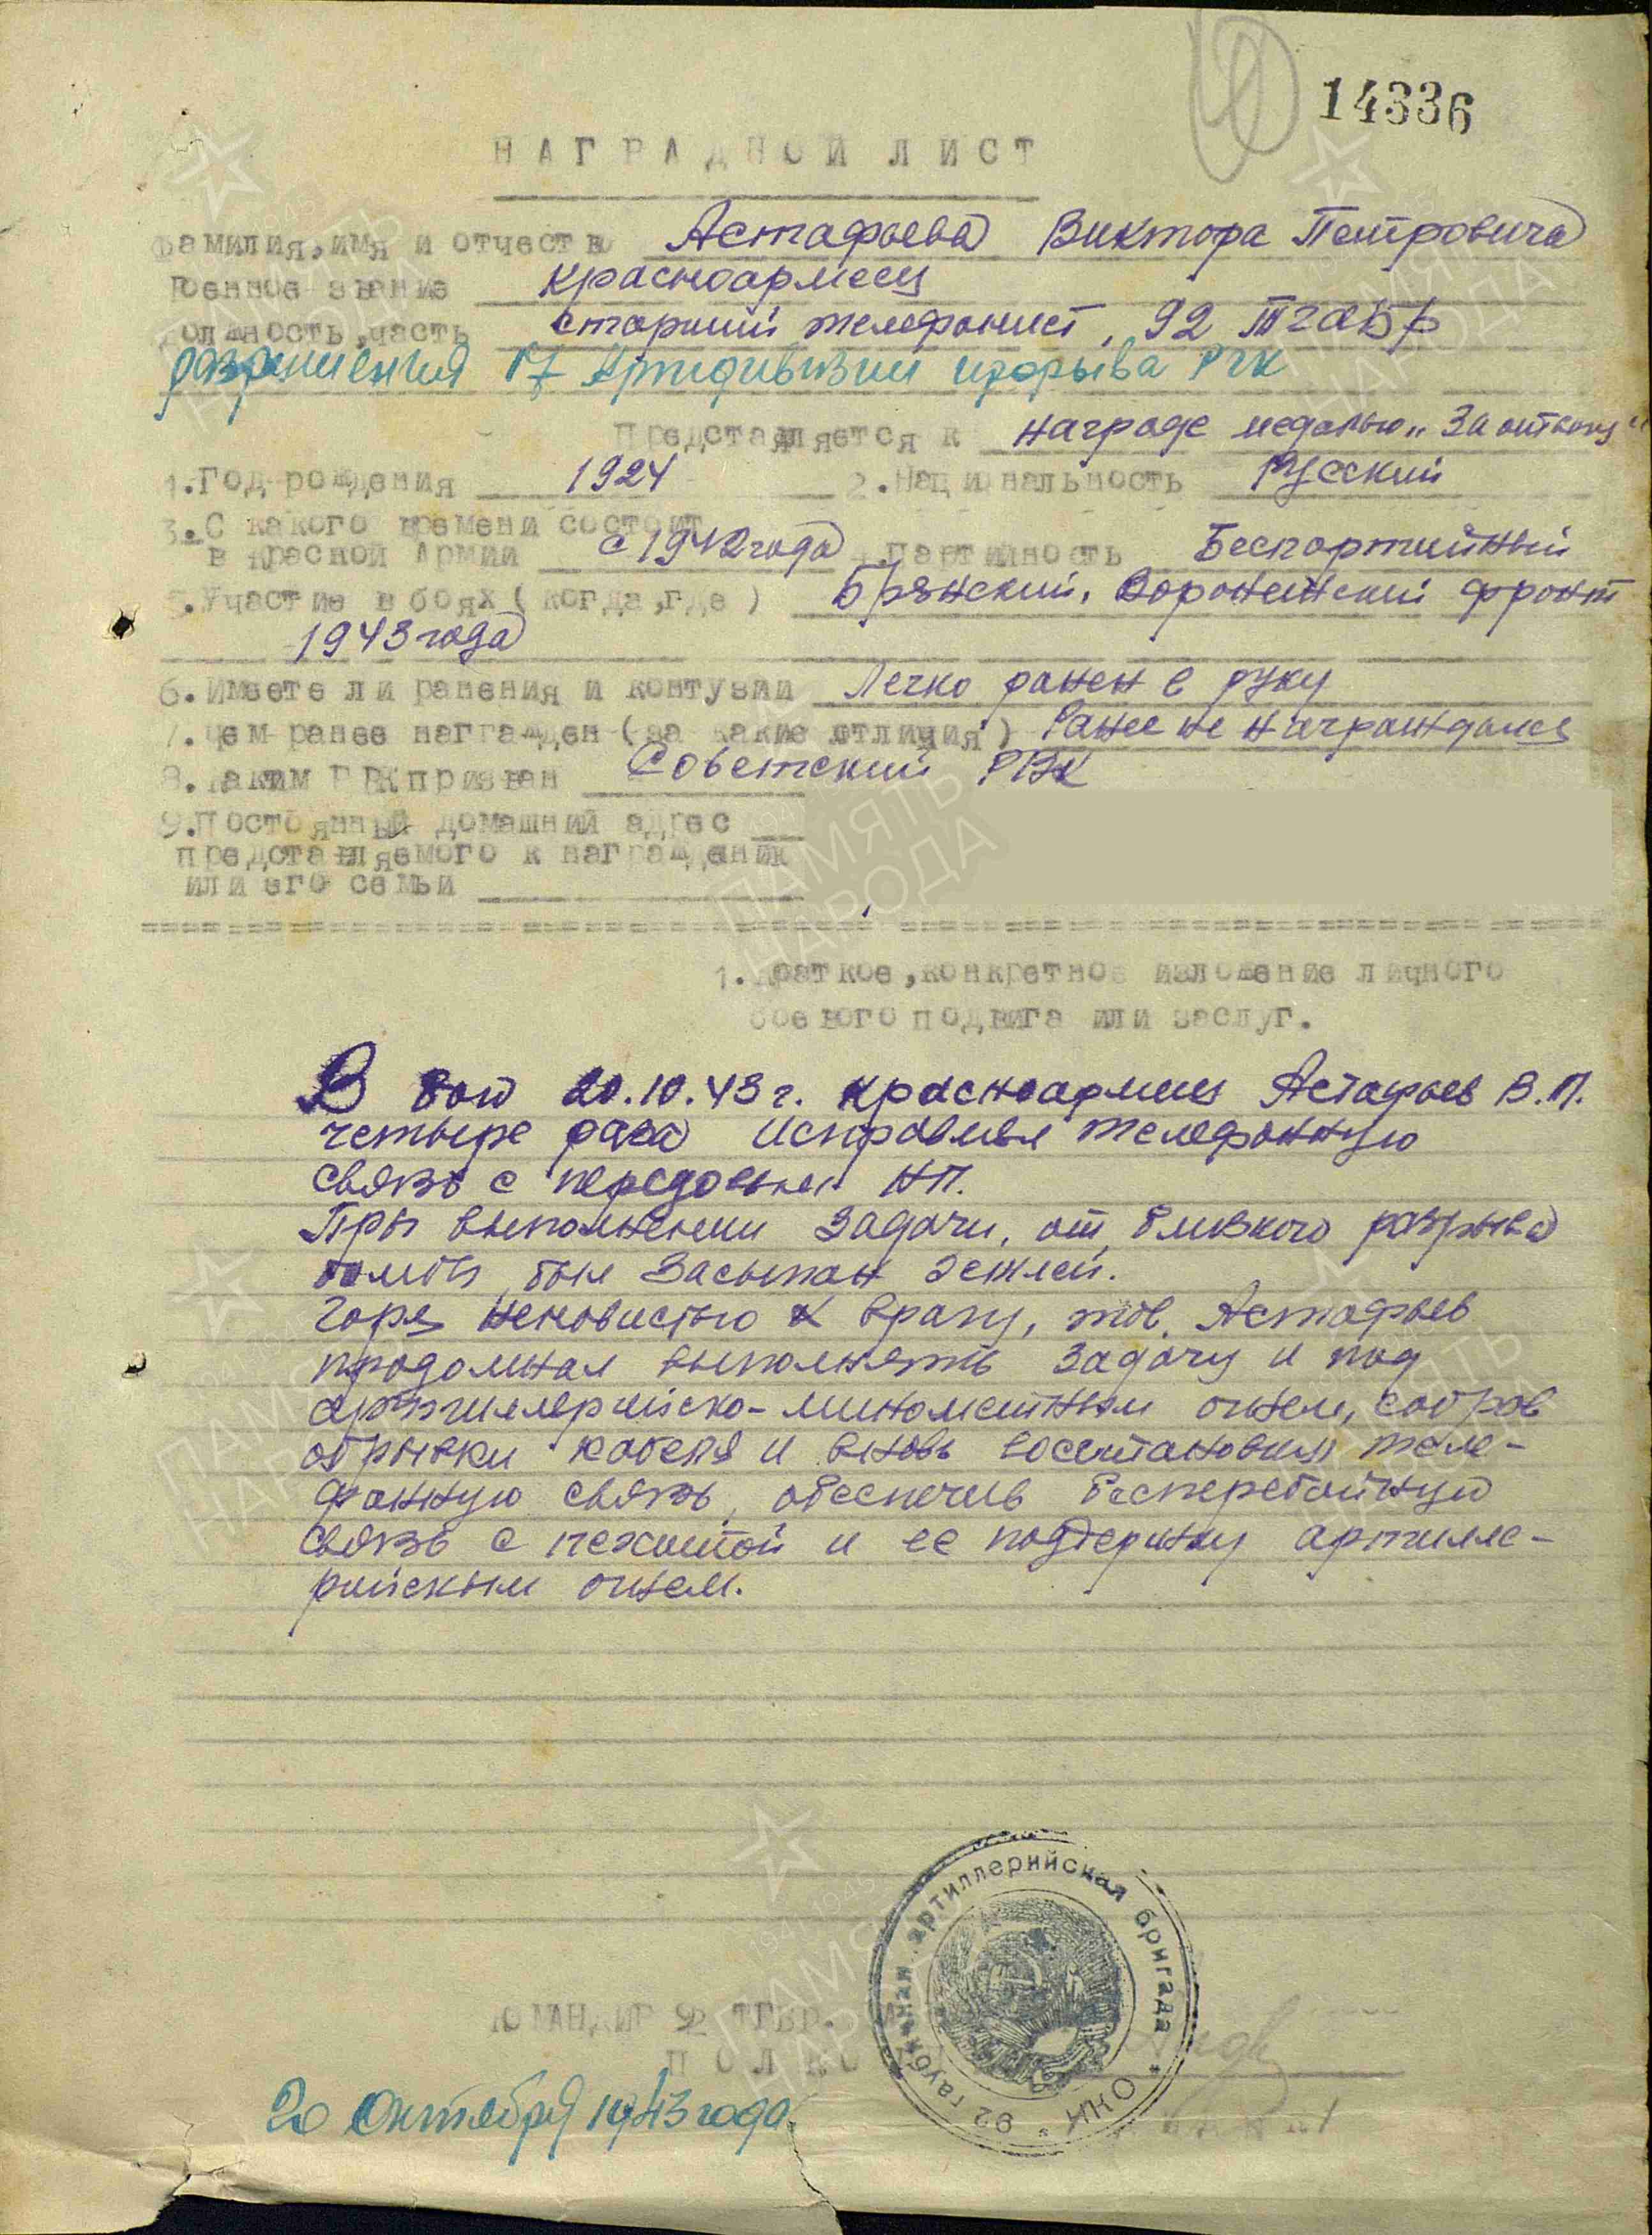 14336
НАГРАДНОЙ ЛИСТ
Фамилия, имя и отчество Астафьева Виктора Петровича
Военное звание красноармеец
Должность, часть старший телефонист, 92 ТГАБр
разрешения 17 Артдивизии прорыва РГК
Представляется к награде медалью „За отвагу"
1. Год рождения 1924 2. Национальность Русский
3. С какого времени состоит
в Красной Армии с 1942 года 4. Партийность Беспартийный
5. Участие в боях (когда, где) Брянский, Воронежский фронт
1943 года
6. Имеете ли ранения и контузии Легко ранен в руку
7. Чем ранее награжден (за какие отличия) Ранее не награждался
8. Каким РВК призван Советский РВК
9. Постоянный домашний адрес
представляемого к награждению
или его семьи
1. Краткое, конкретное изложение личного
боевого подвига или заслуг.
В бою 20.10.43 г. красноармеец Астафьев В.П.
четыре раза исправлял телефонную
связь с передовым НП.
При выполнении задачи, от близкого разрыва
бомбы, был засыпан землей.
Горя ненавистью к врагу, тов. Астафьев
продолжал выполнять задачу и под
артиллерийско-минометным огнем, собрав
обрывки кабеля и вновь восстановил теле-
фонную связь, обеспечив бесперебойную
связь с пехотой и ее поддержку артилле-
рийским огнем.
КОМАНДИР 92 ТГБР.
ПОЛКО
92 гаубичная артиллерийская бригада * НКО *
20 Октября 1943 года.
ПАМЯТЬ НАРОДА
1941-1945